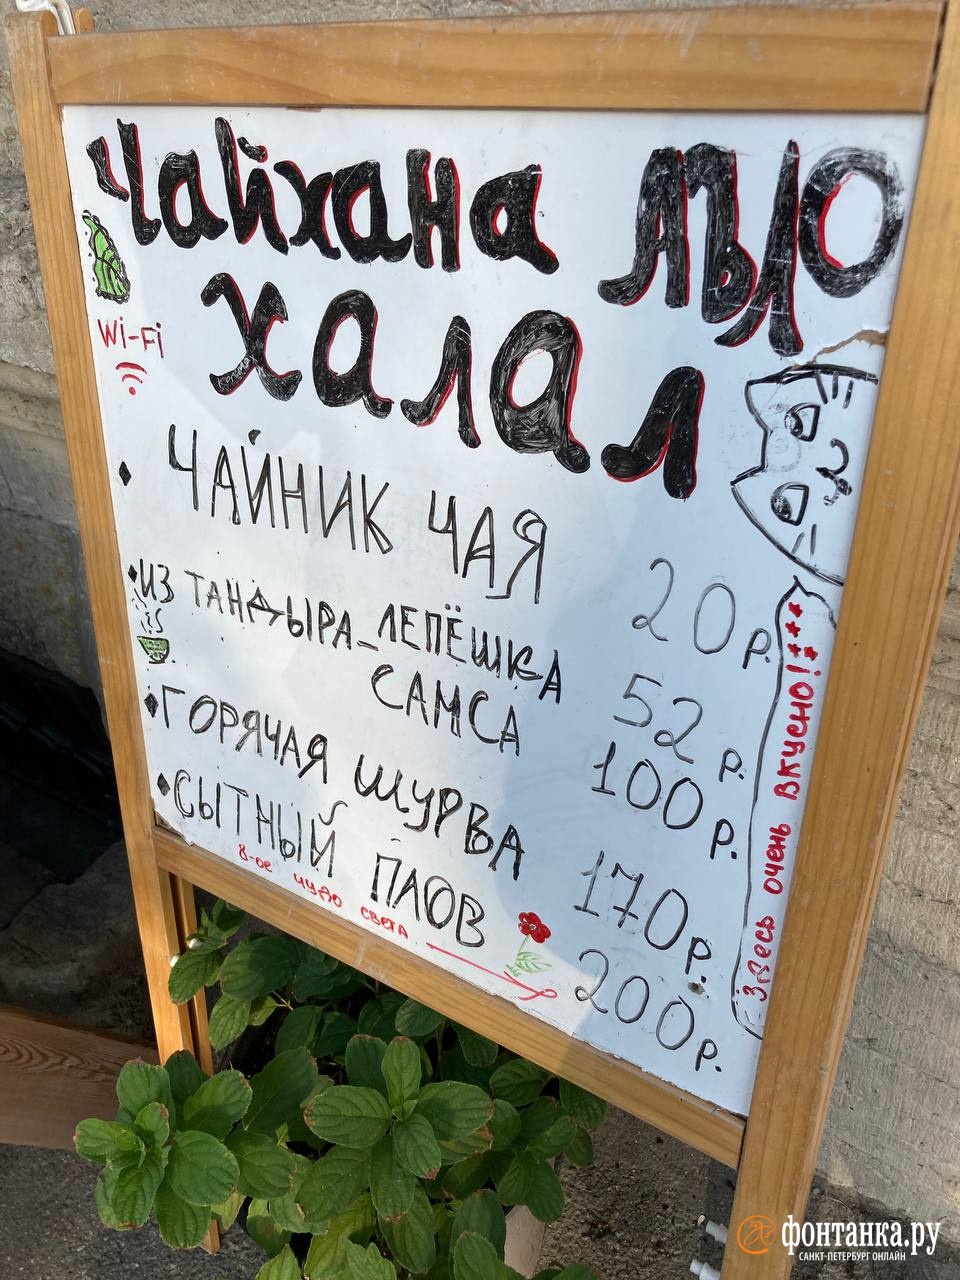 Чайхана МЫО
Халал
Wi-Fi
ЧАЙНИК ЧАЯ 20 р.
ИЗ ТАНДЫРА_ЛЕПЁШКА 52 р.
САМСА 100 р.
ГОРЯЧАЯ ШУРВА 170 р.
СЫТНЫЙ ПЛОВ 200 р.
8-ое чудо света
Здесь очень вкусно!***
фонтанка.ру
САНКТ-ПЕТЕРБУРГ ОНЛАЙН